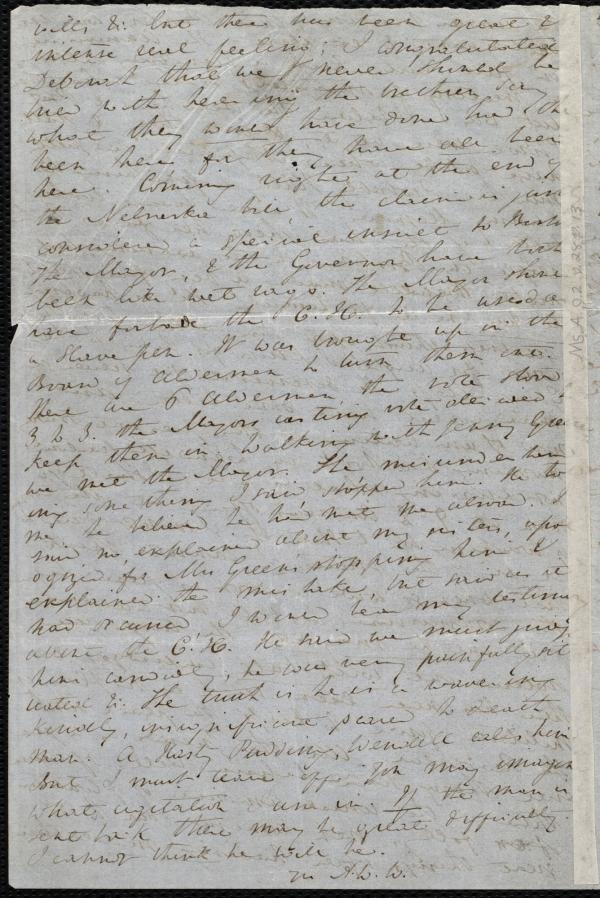 calls &c but there has been great &
intense real feeling; I congratulated
Deborah that we never should be
tried with hearing the brethren say
what they would have done had they
been here for they have all been
here. Coming right at the end of
the Nebraska bill, the claim is just
considered a special insult to Boston
The Mayor, & the Governor have both
been like wet rags. The Mayor should
have forbade the C.H. to be used as
a slave pen. It was brought up in the
Board of Aldermen to turn them out.
There are 6 Aldermen, the vote stood
3 to 3. the Mayors casting vote decided to
keep them in. Walking with Jenny Green
we met the Mayor. She misunderstand
ing something I said stopped him. He told
me he believed he had met me abroad. I
said no, explained about my sisters, apol
ogized for Mrs Greens stopping him &
explained the mistake, but said as it
had occurred I would bear my testimony
about the C.H. He said we must judge
him candidly, he was very painfully sit
uated &c. The truth is he is a wavering
kindly, insignificant scared to death
man. A Hasty Pudding Wendell calls him
But I must leave off. You may imagine
what agitation we are in. If the man is
sent back there may be great difficulty
I cannot think he will be.
A.W.W.